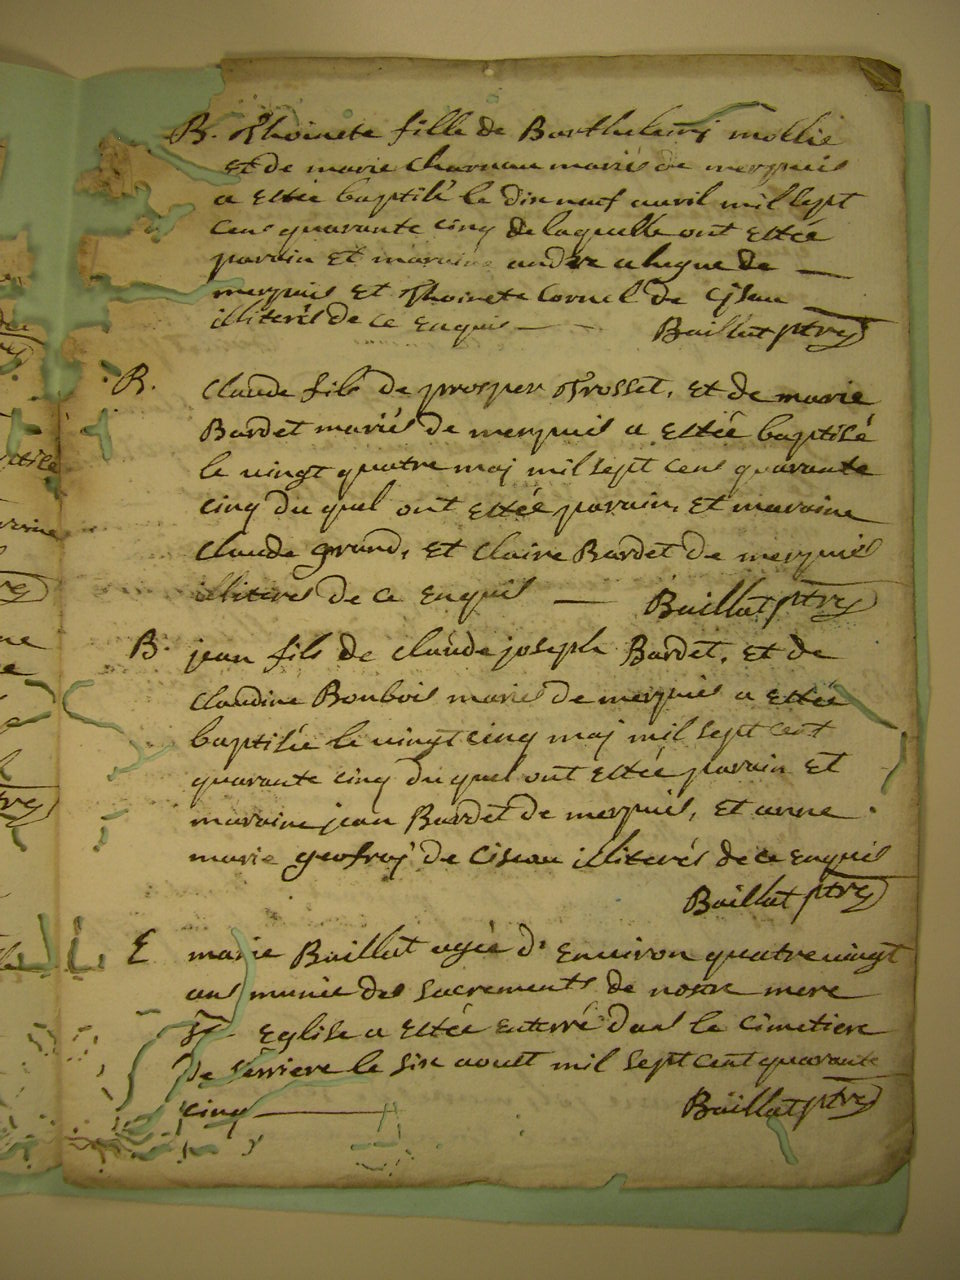 B. Thoinete fille de Barthelemj mollie
et de marie charnau mariés de merpuis
a estée baptisé le dix neuf auril mil sept
cens quarante cinq de laquelle ont estée
parain et maraine andre
merpuis et Thoinete Cornel de Cjsau
illiterés de ce enquis Baillat ptre
B. Claude fils de prosper Frosset, et de marie
Bardet mariés de merpuis a estée baptisé
le vingt quatre maj mil sept cens quarante
cinq du quel ont estée parain, et maraine
Claude grand, et Claire Bardet de merpuis
illiterés de ce enquis Baillat ptre
B. jean fils de claude joseph Bardet, et de
claudine Bonbois mariés de merpuis a estée
baptisée le vingt cinq maj mil sept cent
quarante cinq du quel ont estée parain et
maraine jean Bardet de merpuis, et anne
marie geofroj de Ciseau illiterés de ce enquis
Baillat ptre
E marie Baillat agée d'environ quatre vingt
ans munie des sacrements de nostre mere
Ste Eglise a estée enterré dans le cimetiere
de serriere le six aoust mil sept cent quarante
cinq Baillat ptre